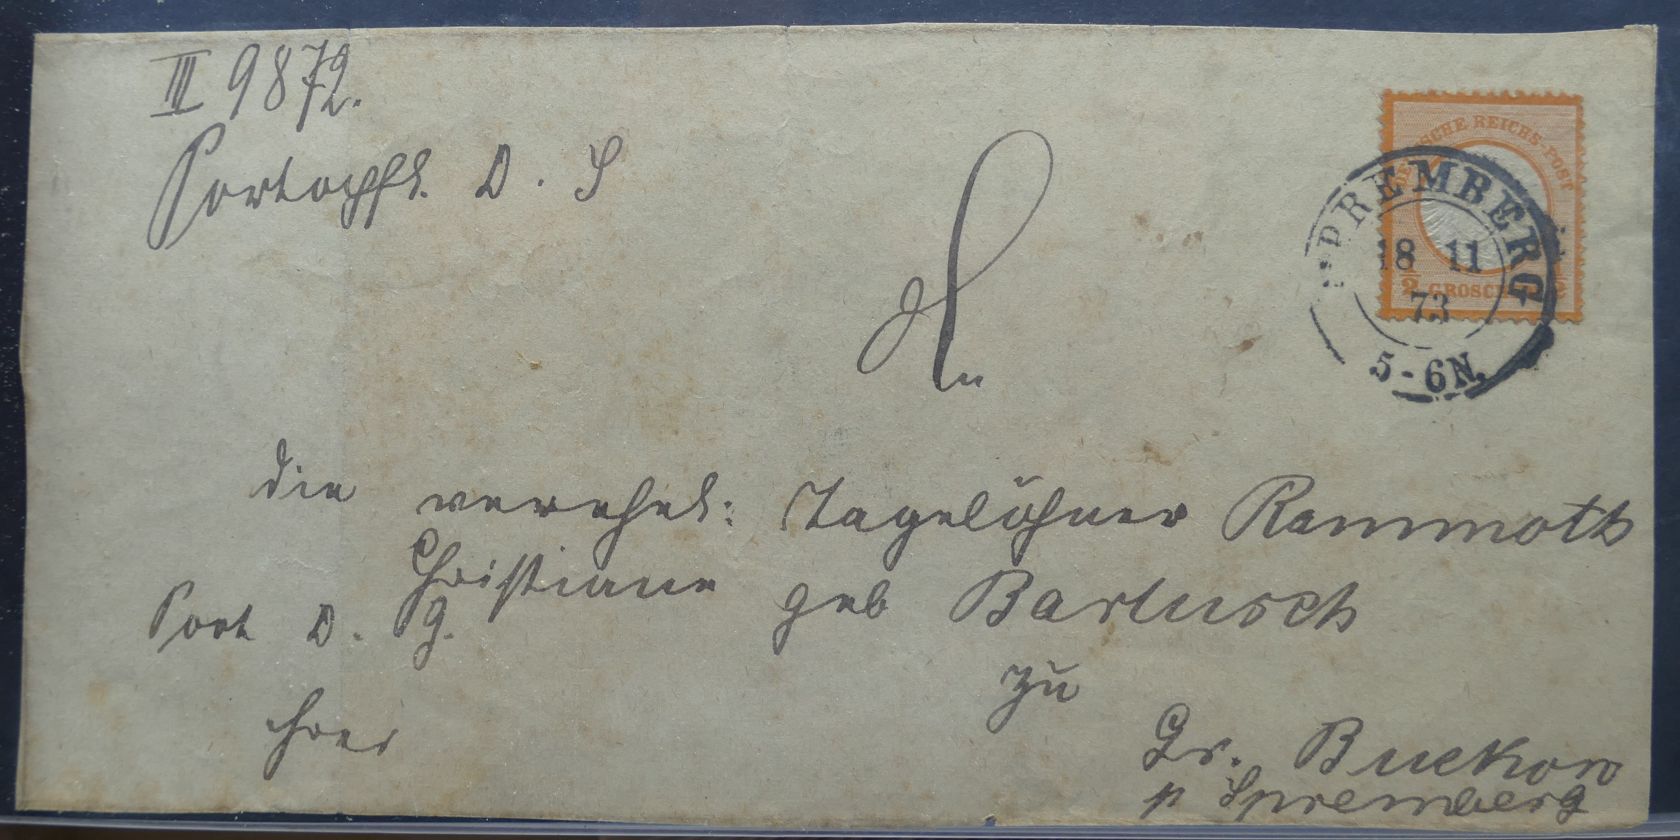 III 9872.
Portopfl. D. S
An
die verehel: Tagelöhner Rammoth
Christiane geb Bartusch
Port D. G.
zu
Gr. Buckow
p Spremberg
SCHE REICHS-POST
1/2 GROSCH
SPREMBERG
18 11
73
5-6N.